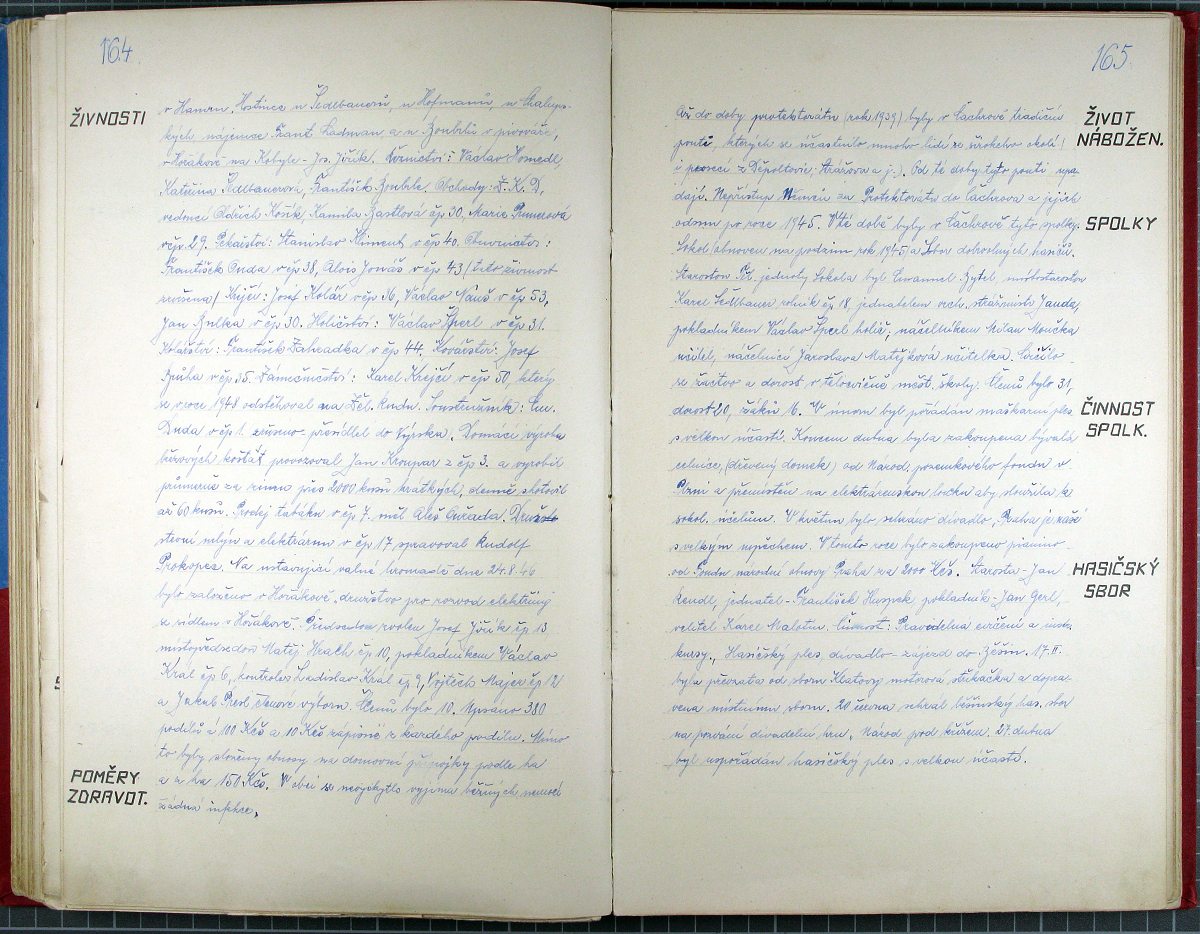 164
ŽIVNOSTI
v Hamru. Hostince u Šedlbauerů, u Hofmanů, u Chalups-
kých nájemce Frant. Ladman a u Boublí v pivováře,
v Hořákově na Kobyle - Jos. Jiřík. Řeznictví: Václav Homedl,
Kateřina Sedlbauerová, František Boubele. Obchody: Z. K. D,
vedoucí Oldřich Košík, Kamila Bastlová čp 30. Marie
v čp. 29. Pekařství: Stanislav Kliment v čp 40. Obuvnictví:
František Duda v čp 38, Alois Jonáš v čp 43 / tato živnost
zrušena / Krejčí: Josef Kolář v čp 36, Václav Nauš v čp 53,
Jan Bulka v čp 30. Holičství: Václav Šperl v čp 31.
Kolářství: František Zahradka v čp 44. Kovářství: Josef
v čp 35. Zámečnictví: Karel Krejčí v čp 50, který
se v roce 1948 odstěhoval na Žel. Rudu. Soustružník: Em.
Duda v čp 1. zrušeno - přesídlel do Výrska. Domácí výrobu
březových košťat provozoval Jan Kroupar z čp 3. a vyrobil
průměrně za zimu přes 2000 kusů krátkých, denně zhotovil
až 60 kusů. Prodej tabáku v čp 7. měl Aleš Družste
stevní mlýn a elektrárnu v čp 17 spravoval Rudolf
Prokopec. Na ustavující valné hromadě dne 24.8.46
bylo založeno v Hořákově družstvo pro rozvod elektřiny
se sídlem v Hořákově. Předsedou zvolen Josef Jiřík čp 13
místopředsedou Matěj Hrach čp 10, pokladníkem Václav
Král čp 6, kontrolor Ladislav Král čp 9, Vojtěch Majer čp 12
a Jakub Presl členové výboru. Členů bylo 10. Upsáno 380
podílů á 100 Kčs a 10 Kčs zápisné z každého podílu. Mimo
to byly složeny obnosy na domovní přípojky podle ha
a z ha 150 Kčs. V obci se nevyskytlo vyjma běžných nemocí
žádná infekce.
POMĚRY
ZDRAVOT.
165
Až do doby protektorátu (rok 1939) byly v Čachrově tradiční
poutě, kterých se účastnilo mnoho lidí ze širokého okolí /
i procesí z Děpoltovic, Strážova a j. /. Od té doby tyto poutě upa-
dají. Nepřístup Němců za Protektorátu do Čachrova a jejich
odsun po roce 1945. V té době byly v Čachrově tyto spolky.
Sokol (obnoven na podzim rok 1945) a Sbor dobrovolných hasičů.
Starostou Těl. jednoty Sokola byl Emanuel Zytel, místostarostou
Karel Sedlbauer rolník čp 18 jednatelem vrch. strážmistr Janda,
pokladníkem Václav Šperl holič, náčelníkem Milan Moučka
učitel, náčelnicí Jaroslava Matějková učitelka. Cvičilo
se žactvo a dorost v tělocvičně měšť. školy. Členů bylo 31,
dorost 20, žáků 16. V únoru byl pořádán maškarní ples
s velkou účastí. Koncem dubna byla zakoupena bývalá
celnice, (dřevěný domek) od Národ. pozemkového fondu v
Plzni a přemístěn na elektrárenskou louku aby sloužila k
sokol. účelům. V květnu bylo sehráno divadlo, Praha je naše
s velkým úspěchem. V tomto roce bylo zakoupeno pianino
od Fondu národní obnovy Praha za 2000 Kčs. Starosta - Jan
Rendl, jednatel - František pokladník - Jan Gerl,
velitel Karel Malotin. Činnost: Pravidelná cvičení a
kursy. Hasičský ples, divadlo - zájezd do Běšin. 17. II.
byla převzata od sboru Klatovy motorová stříkačka a dopra-
vena místnímu sboru. 20 června sehrál běšinský has. sbor
na pozvání divadelní hru, Národ pod křížem. 27. dubna
byl uspořádán hasičský ples s velkou účastí.
ŽIVOT
NÁBOŽEN.
SPOLKY
ČINNOST
SPOLK.
HASIČSKÝ
SBOR